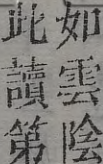 如雲陰
此讀第